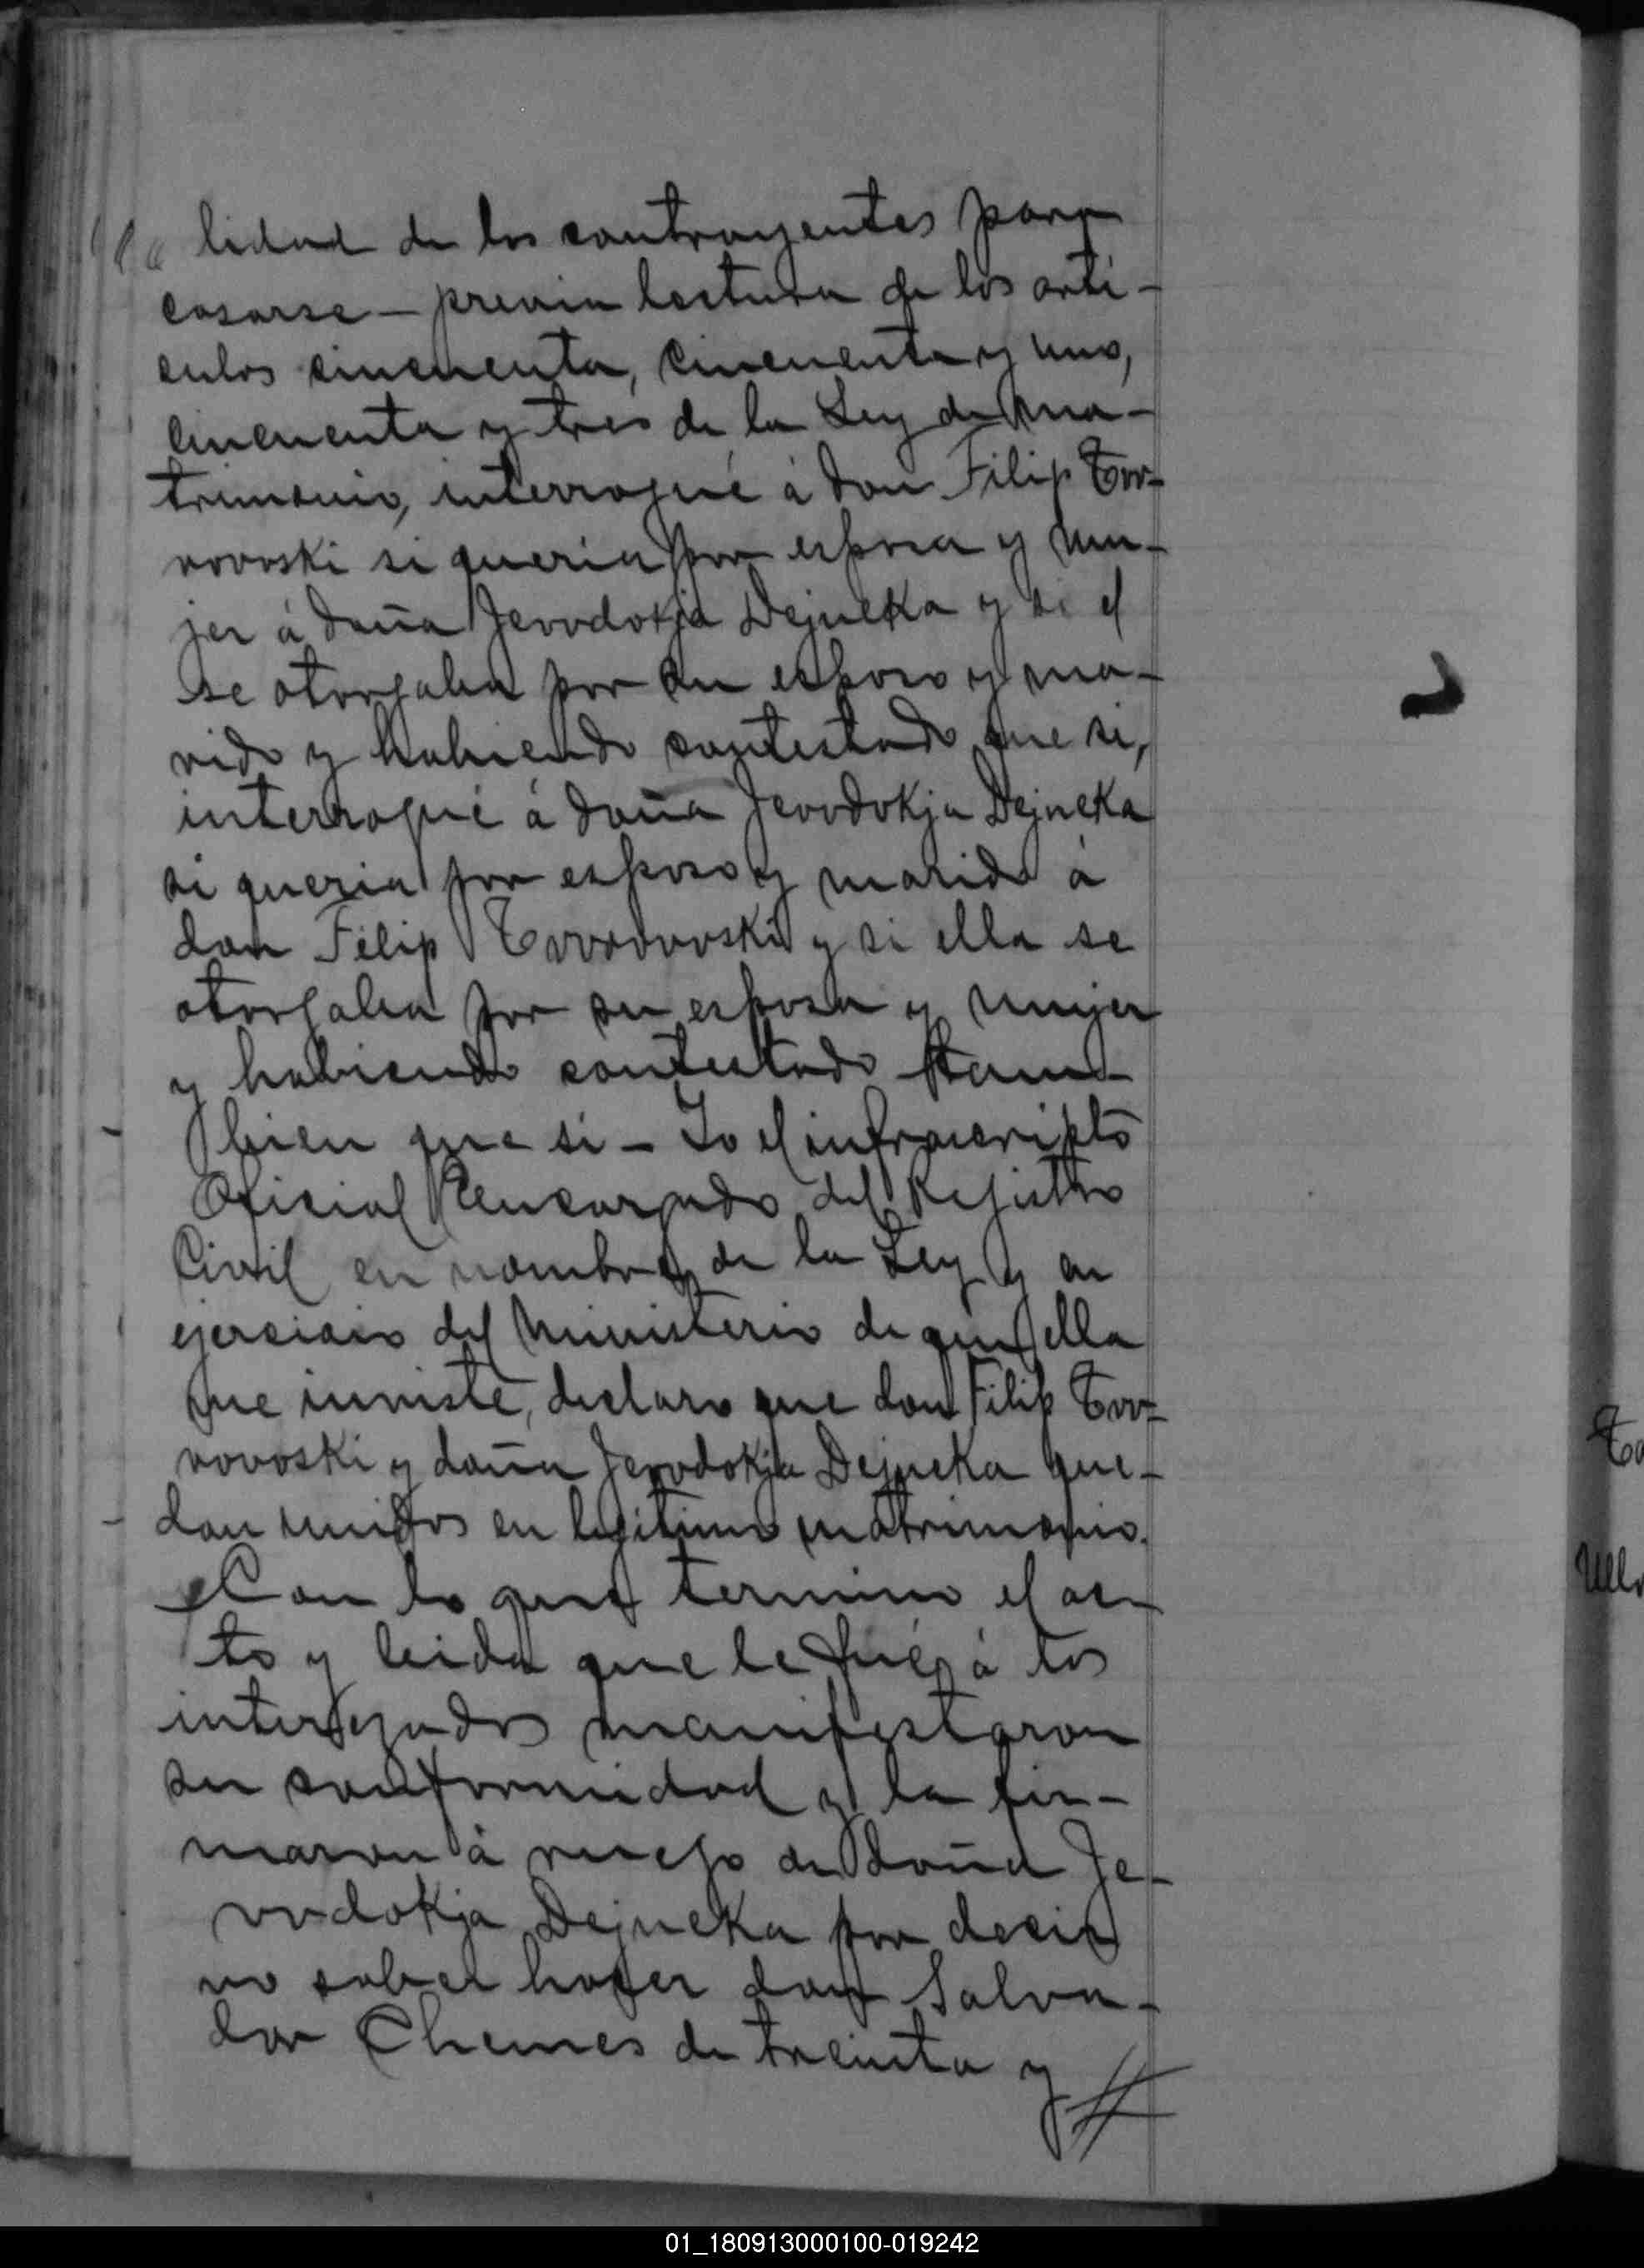 lidad de los contrayentes para
casarse — previa lectura de los arti-
culos cincuenta, cincuenta y uno,
cincuenta y tres de la Ley de Ma-
trimonio, interrogué á don Filip Tvor-
vovoski si queria por esposa y mu-
jer á doña Jevvdokja Dejneka y si el
se otorgaba por su esposo y ma-
rido y habiendo contestado que si,
interrogué á doña Jevvdokja Dejneka
si queria por esposo y marido á
don Filip y si ella se
otorgaba por su esposa y mujer
y habiendo contestado tam-
bien que si — Yo el infrascripto
Oficial Encargado del Registro
Civil en nombre de la Ley y en
ejercicio del Ministerio de que ella
me inviste, declaro que don Filip
vovoski y doña Jevvdokja Dejneka que-
dan unidos en legitimo matrimonio.
Con lo que termino el ac-
to y leida que le fué á los
interesados manifestaron
su conformidad y la fir-
maron á ruego de doña Je-
vvdokja Dejneka por decir
no saber hacer don Salva-
dor Chemes de treinta y
01_180913000100-019242